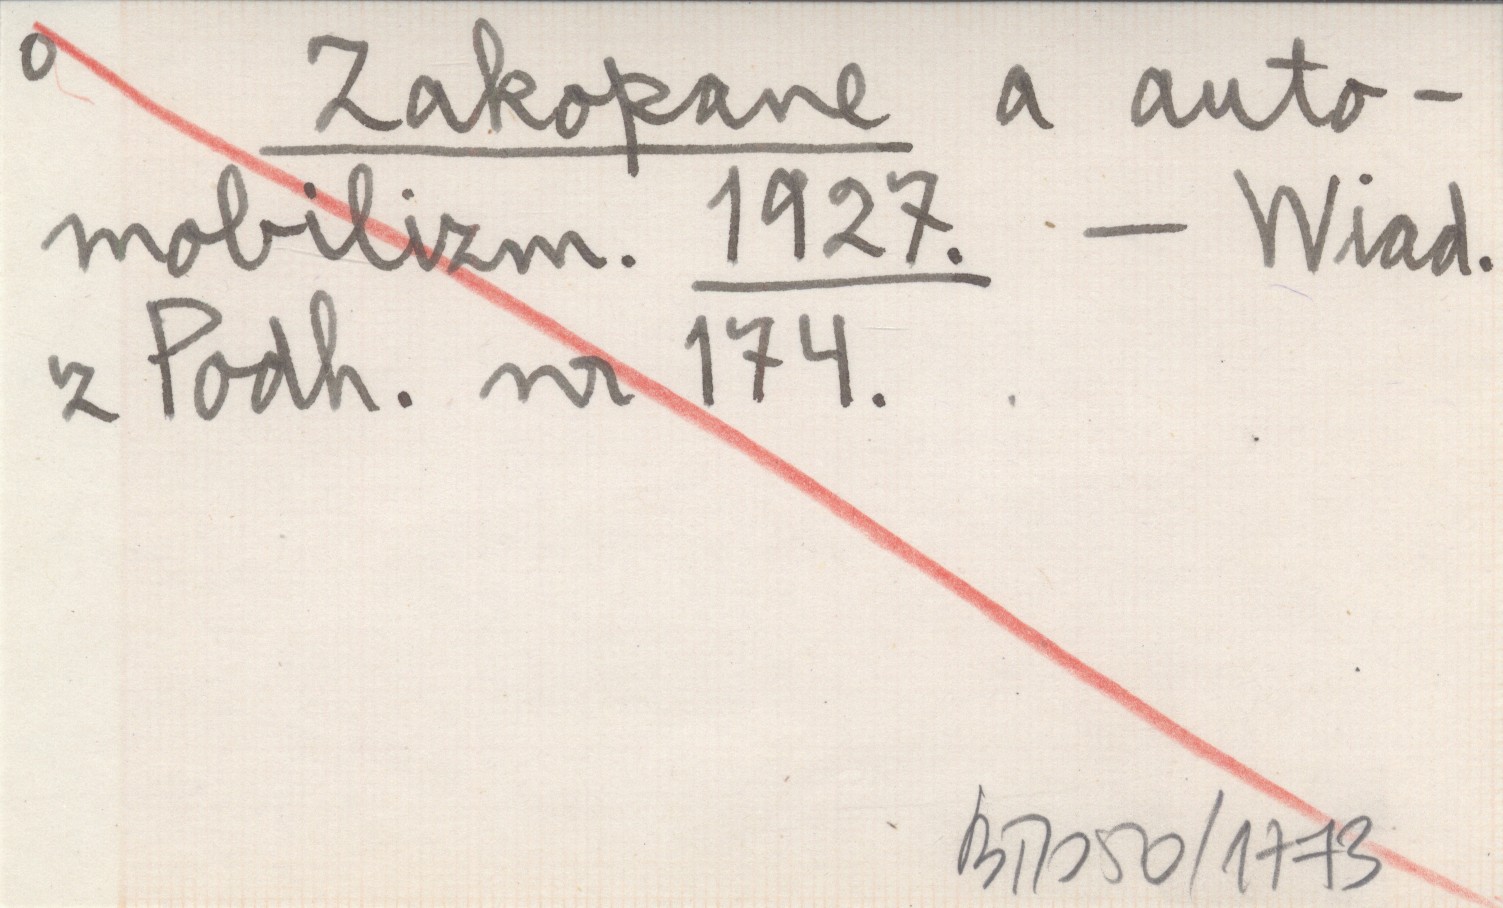 o Zakopane a auto-
mobilizm. 1927. — Wiad.
z Podh. nr 174.
/1773